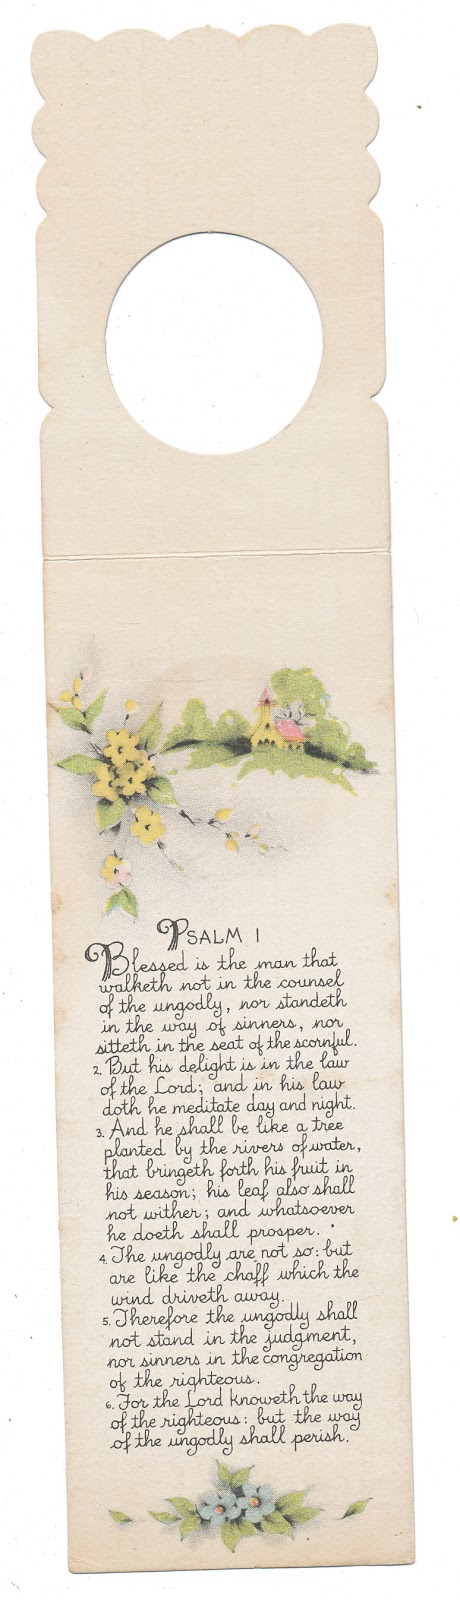 PSALM 1
Blessed is the man that
walketh not in the counsel
of the ungodly, nor standeth
in the way of sinners, nor
sitteth in the seat of the scornful.
2. But his delight is in the law
of the Lord; and in his law
doth he meditate day and night.
3. And he shall be like a tree
planted by the rivers of water,
that bringeth forth his fruit in
his season; his leaf also shall
not wither; and whatsoever
he doeth shall prosper.
4. The ungodly are not so: but
are like the chaff which the
wind driveth away.
5. Therefore the ungodly shall
not stand in the judgment,
nor sinners in the congregation
of the righteous.
6. For the Lord knoweth the way
of the righteous: but the way
of the ungodly shall perish.